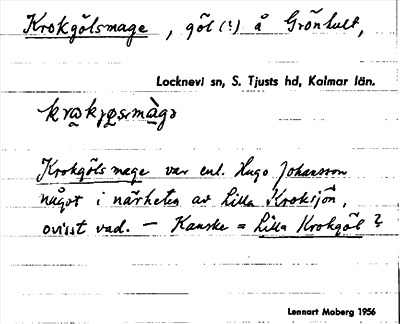 Krokgölsmage, göl (?) å Grönhult,
Locknevi sn, S. Tjusts hd, Kalmar län.
Krokgölsmage var enl. Hugo Johansson
något i närheten av Lilla Kroksjön,
ovisst vad. — Kanske = Lilla Krokgöl?
Lennart Moberg 1956